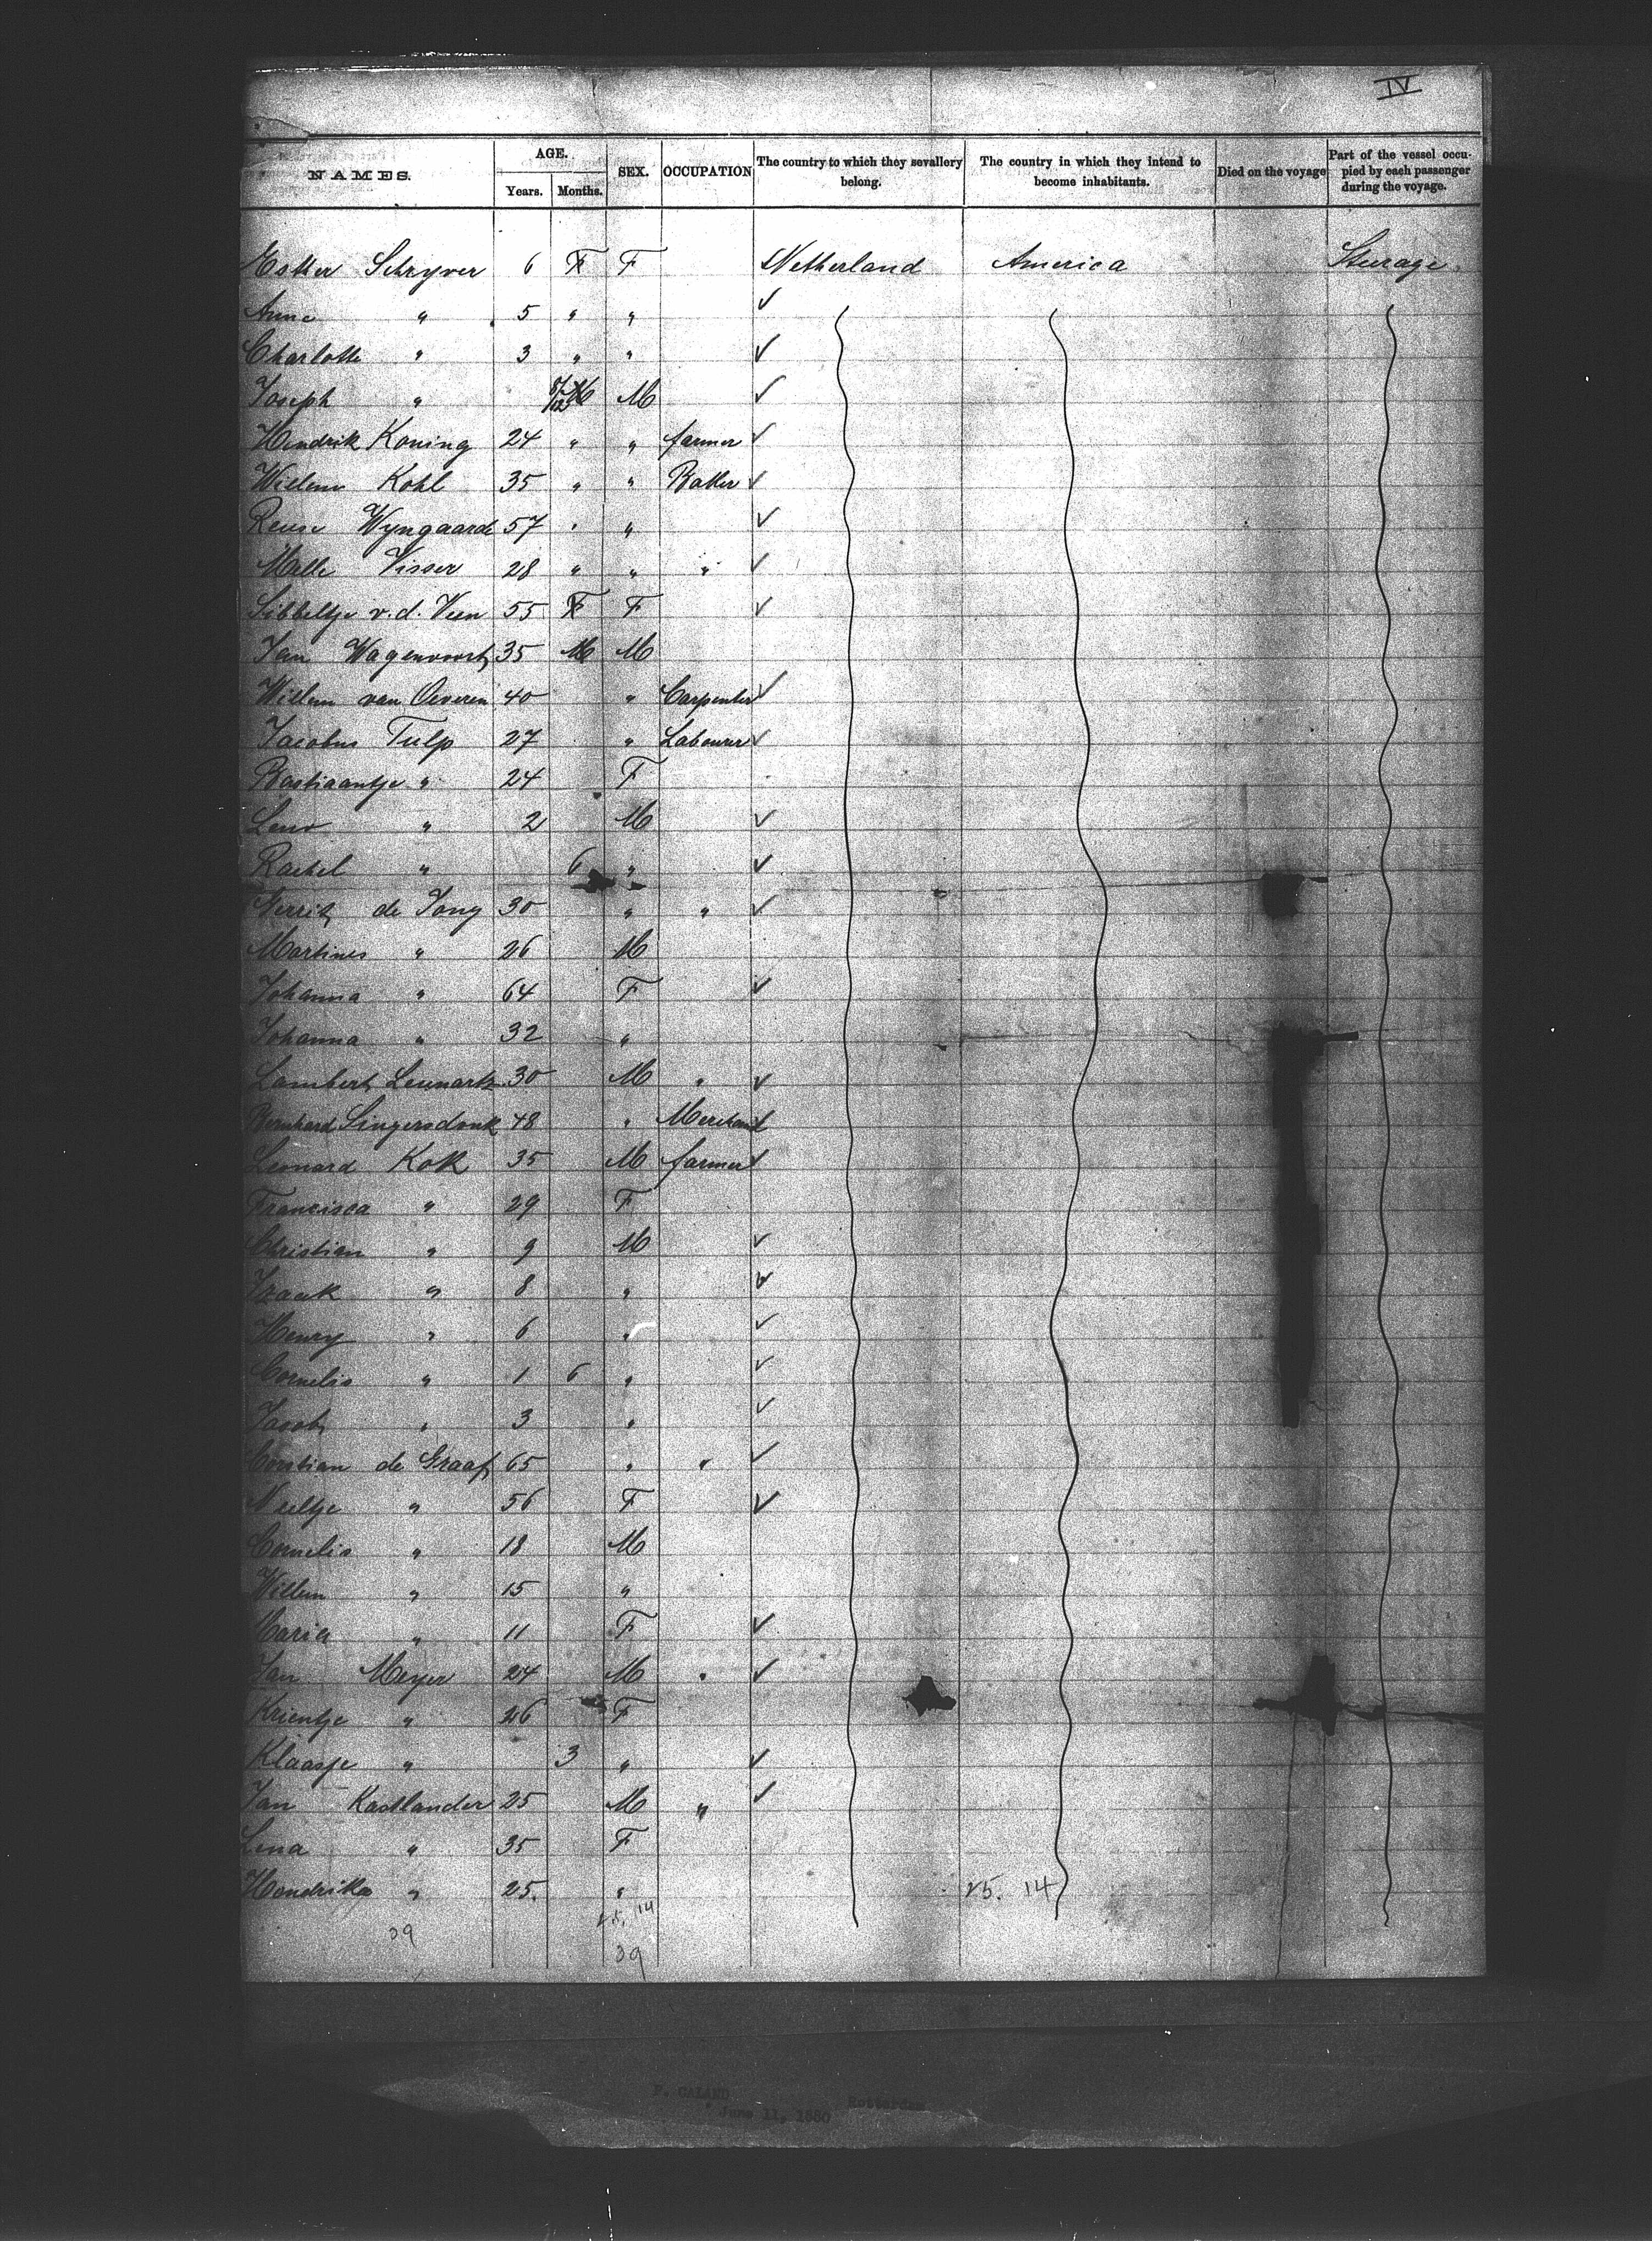 IV
NAMES. AGE. Years. Months. SEX. OCCUPATION The country to which they sevallery belong. The country in which they intend to become inhabitants. Died on the voyage Part of the vessel occupied by each passenger during the voyage.
Esther Schryver 6 F F Netherland America Sturage.
Anna " 5 " " ✓
Charlotte " 3 " " ✓
Joseph " 8/12 M M ✓
Hendrik Koning 24 " " farmer ✓
Willem Kohl 35 " " Bakker ✓
Wyngaarde 57 " " ✓
Visser 28 " " " ✓
Sibbeltje v.d. Veen 55 F F ✓
Jan Wagenvoort 35 M M
Willem van Oeveren 40 " Carpenter ✓
Jacobus Tulp 27 " Labourer ✓
Bastiaantje " 24 F
Leno " 2 M ✓
Rachel " 6 " ✓
Gerrit de Jong 30 " " ✓
Martines " 26 M
Johanna " 64 F ✓
Johanna " 32 "
Lambert Lennartz 30 M " ✓
Bernhard Singersdonk 48 " Merchant
Leonard Kok 35 M farmer ✓
Francisca " 29 F
Christian " 9 M ✓
Izaak " 8 " ✓
Henry " 6 " ✓
Cornelis " 1 6 " ✓
Jacob " 3 " ✓
de Graaf 65 " " ✓
Neeltje " 56 F ✓
Cornelis " 18 M
Willem " 15 "
Maria " 11 F ✓
Jan Meyer 24 M " ✓
Krientje " 26 F
Klaasje " 3 " ✓
Jan Kastlander 25 M " ✓
Lena " 35 F
Hendrika " 25. " 25. 14
25. 14
39 39
P. CALAND Rotterdam
June 11, 1880